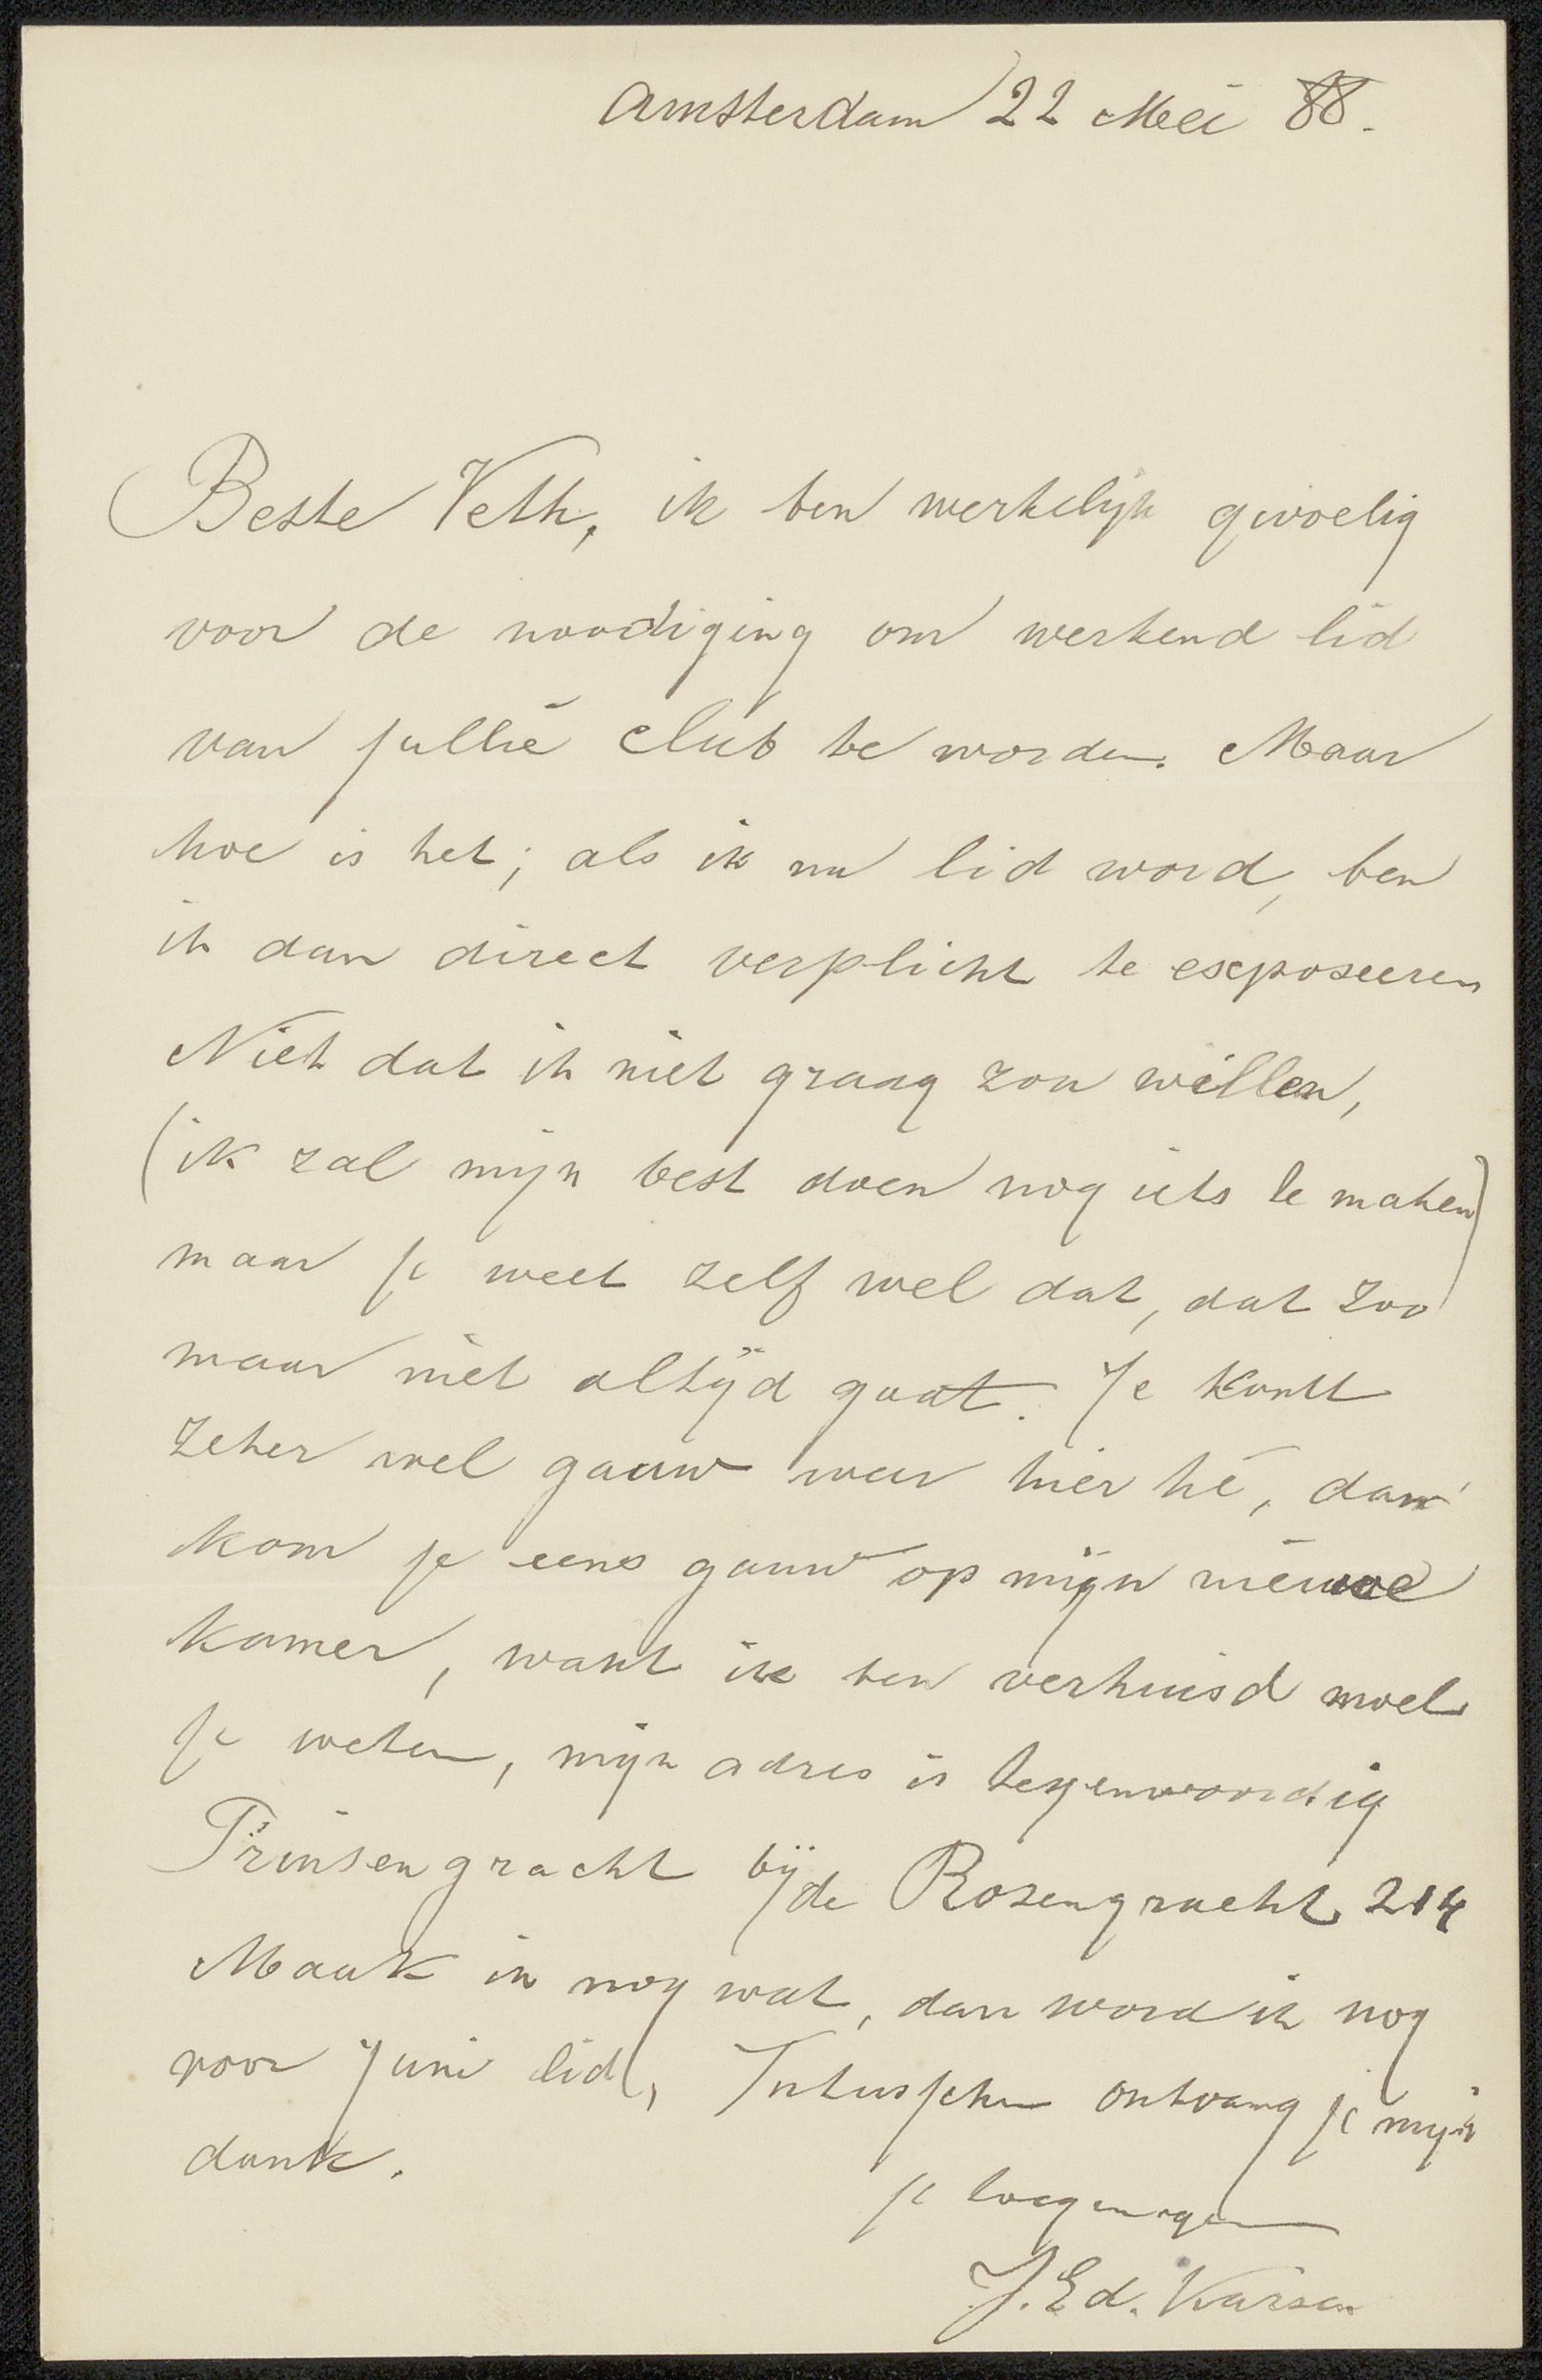 Amsterdam 22 Mei 88.
Beste Veth, ik ben werkelijk gevoelig
voor de noodiging om werkend lid
van jullie club te worden. Maar
hoe is het; als ik nu lid word, ben
ik dan direct verplicht te exposeeren
Niet dat ik niet graag zou willen,
(ik zal mijn best doen nog iets te maken)
maar je weet zelf wel dat, dat zoo
maar niet altijd gaat. Je komt
zeker wel gauw weer hier hè, dan
kom je eens gauw op mijn nieuwe
kamer, want ik ben verhuisd moet
je weten, mijn adres is tegenwoordig
Prinsengracht bij de Rosengracht 214
Maak ik nog wat, dan word ik nog
voor Juni lid, Intusschen ontvang je mijn
dank.
je toegenegen
J. Ed. Karsen